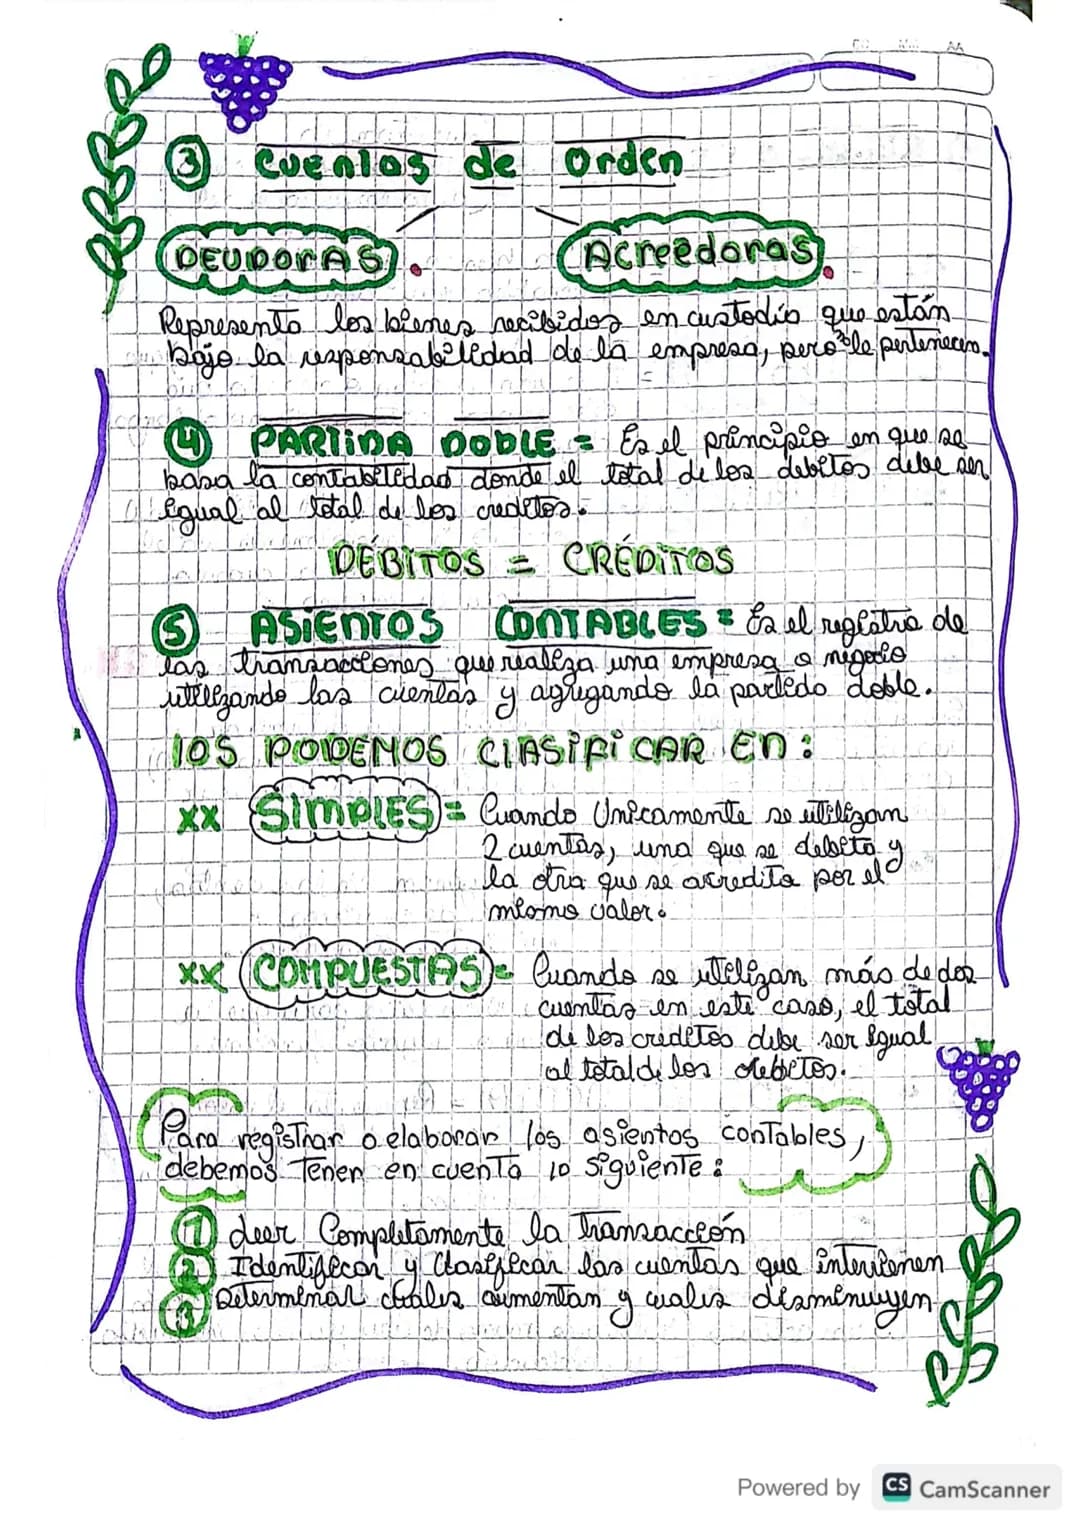 3 Cuentas de Orden
DEUDORAS. Acreedoras.
Representa los bienes recibidos en custodia que están
bajo la responsabilidad de la empresa, pero le pertenecen.
4 PARTIDA DOBLE = Es el principio en que se
basa la contabilidad donde el total de los debitos debe ser
igual al total de los creditos.
DÉBITOS = CRÉDITOS
5 ASIENTOS CONTABLES = Es el registro de
las transacciones que realiza una empresa o negocio
utilizando las cuentas y agregando la partida doble.
LOS PODEMOS CLASIFICAR EN:
xx SIMPLES = Cuando Unicamente se utilizan
2 cuentas, una que se debita y
la otra que se acredita por el
mismo valor.
xx COMPUESTAS = Cuando se utilizan más de dos
cuentas en este caso, el total
de los creditos debe ser igual
al total de los debitos.
Para registrar o elaborar los asientos contables,
debemos Tener en cuenta lo siguiente:
1 Leer Completamente la Transacción
2 Identificar y Clasificar las cuentas que intervienen
3 Determinar cuales aumentan y cuales disminuyen
Powered by CS CamScanner